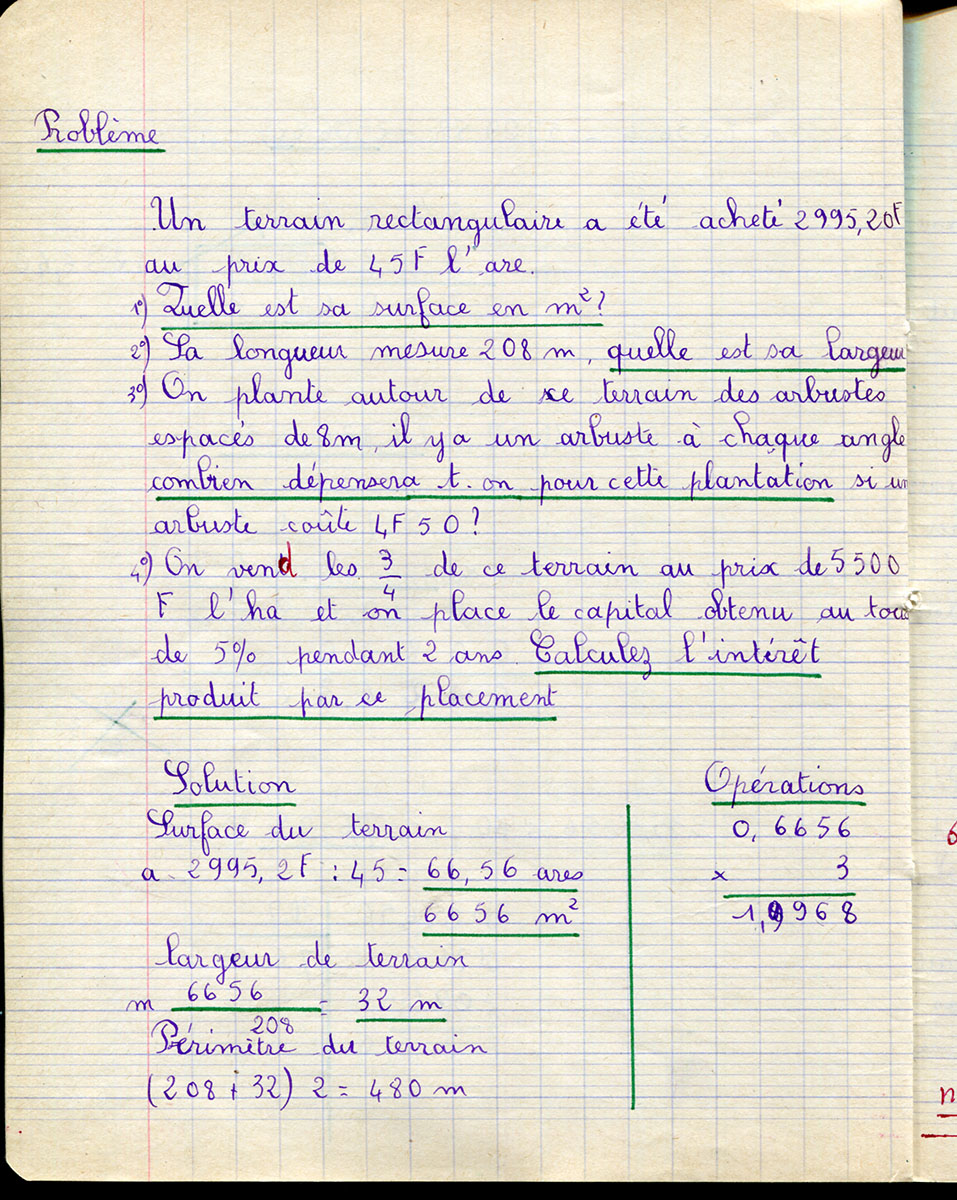 Problème
Un terrain rectangulaire a été acheté 2995,20F
au prix de 45F l'are.
1°) Quelle est sa surface en m²?
2°) Sa longueur mesure 208 m, quelle est sa largeur
3°) On plante autour de ce terrain des arbustes
espacés de 8m, il y a un arbuste à chaque angle
combien dépensera t. on pour cette plantation si un
arbuste coûte 4F50?
4°) On vend les 3/4 de ce terrain au prix de 5500
F l'ha et on place le capital obtenu au taux
de 5% pendant 2 ans. Calculez l'intérêt
produit par ce placement
Solution
Opérations
Surface du terrain
0,6656
a. 2995,2F : 45 = 66,56 ares
x 3
6656 m²
1,9968
largeur de terrain
m 6656/208 = 32 m
Périmètre du terrain
(208 + 32) 2 = 480 m
6
n